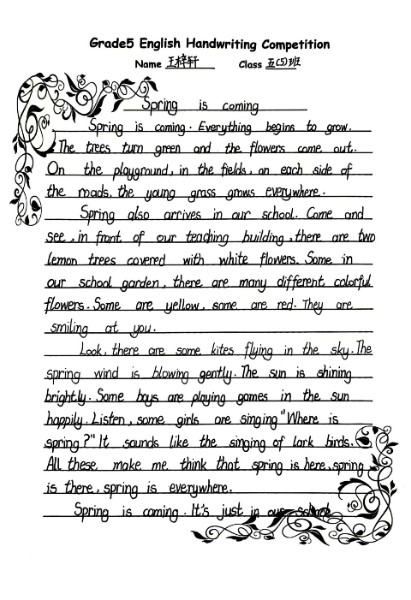 Grade5 English Handwriting Competition
Name 王梓轩 Class 五(5)班
Spring is coming
Spring is coming. Everything begins to grow.
The trees turn green and the flowers come out.
On the playground, in the fields, on each side of
the roads, the young grass grows everywhere.
Spring also arrives in our school. Come and
see, in front of our teaching building, there are two
lemon trees covered with white flowers. Some in
our school garden, there are many different colorful
flowers. Some are yellow, some are red. They are
smiling at you.
Look, there are some kites flying in the sky. The
spring wind is blowing gently. The sun is shining
brightly. Some boys are playing games in the sun
happily. Listen, some girls are singing "Where is
spring?" It sounds like the singing of lark birds.
All these make me think that spring is here, spring
is there, spring is everywhere.
Spring is coming. It's just in our school.